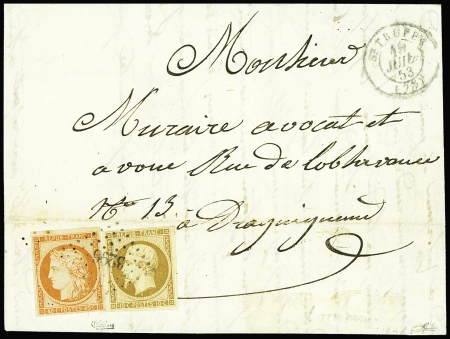 Monsieur
Muraire avocat et
avoué Rue de l'observance
N° 13
à Draguignan
ST TROPEZ
19
JUIL
53
(78)
REPUB. FRANC.
40 C POSTES 40 C
REPUB. FRANC.
10 C POSTES 10 C